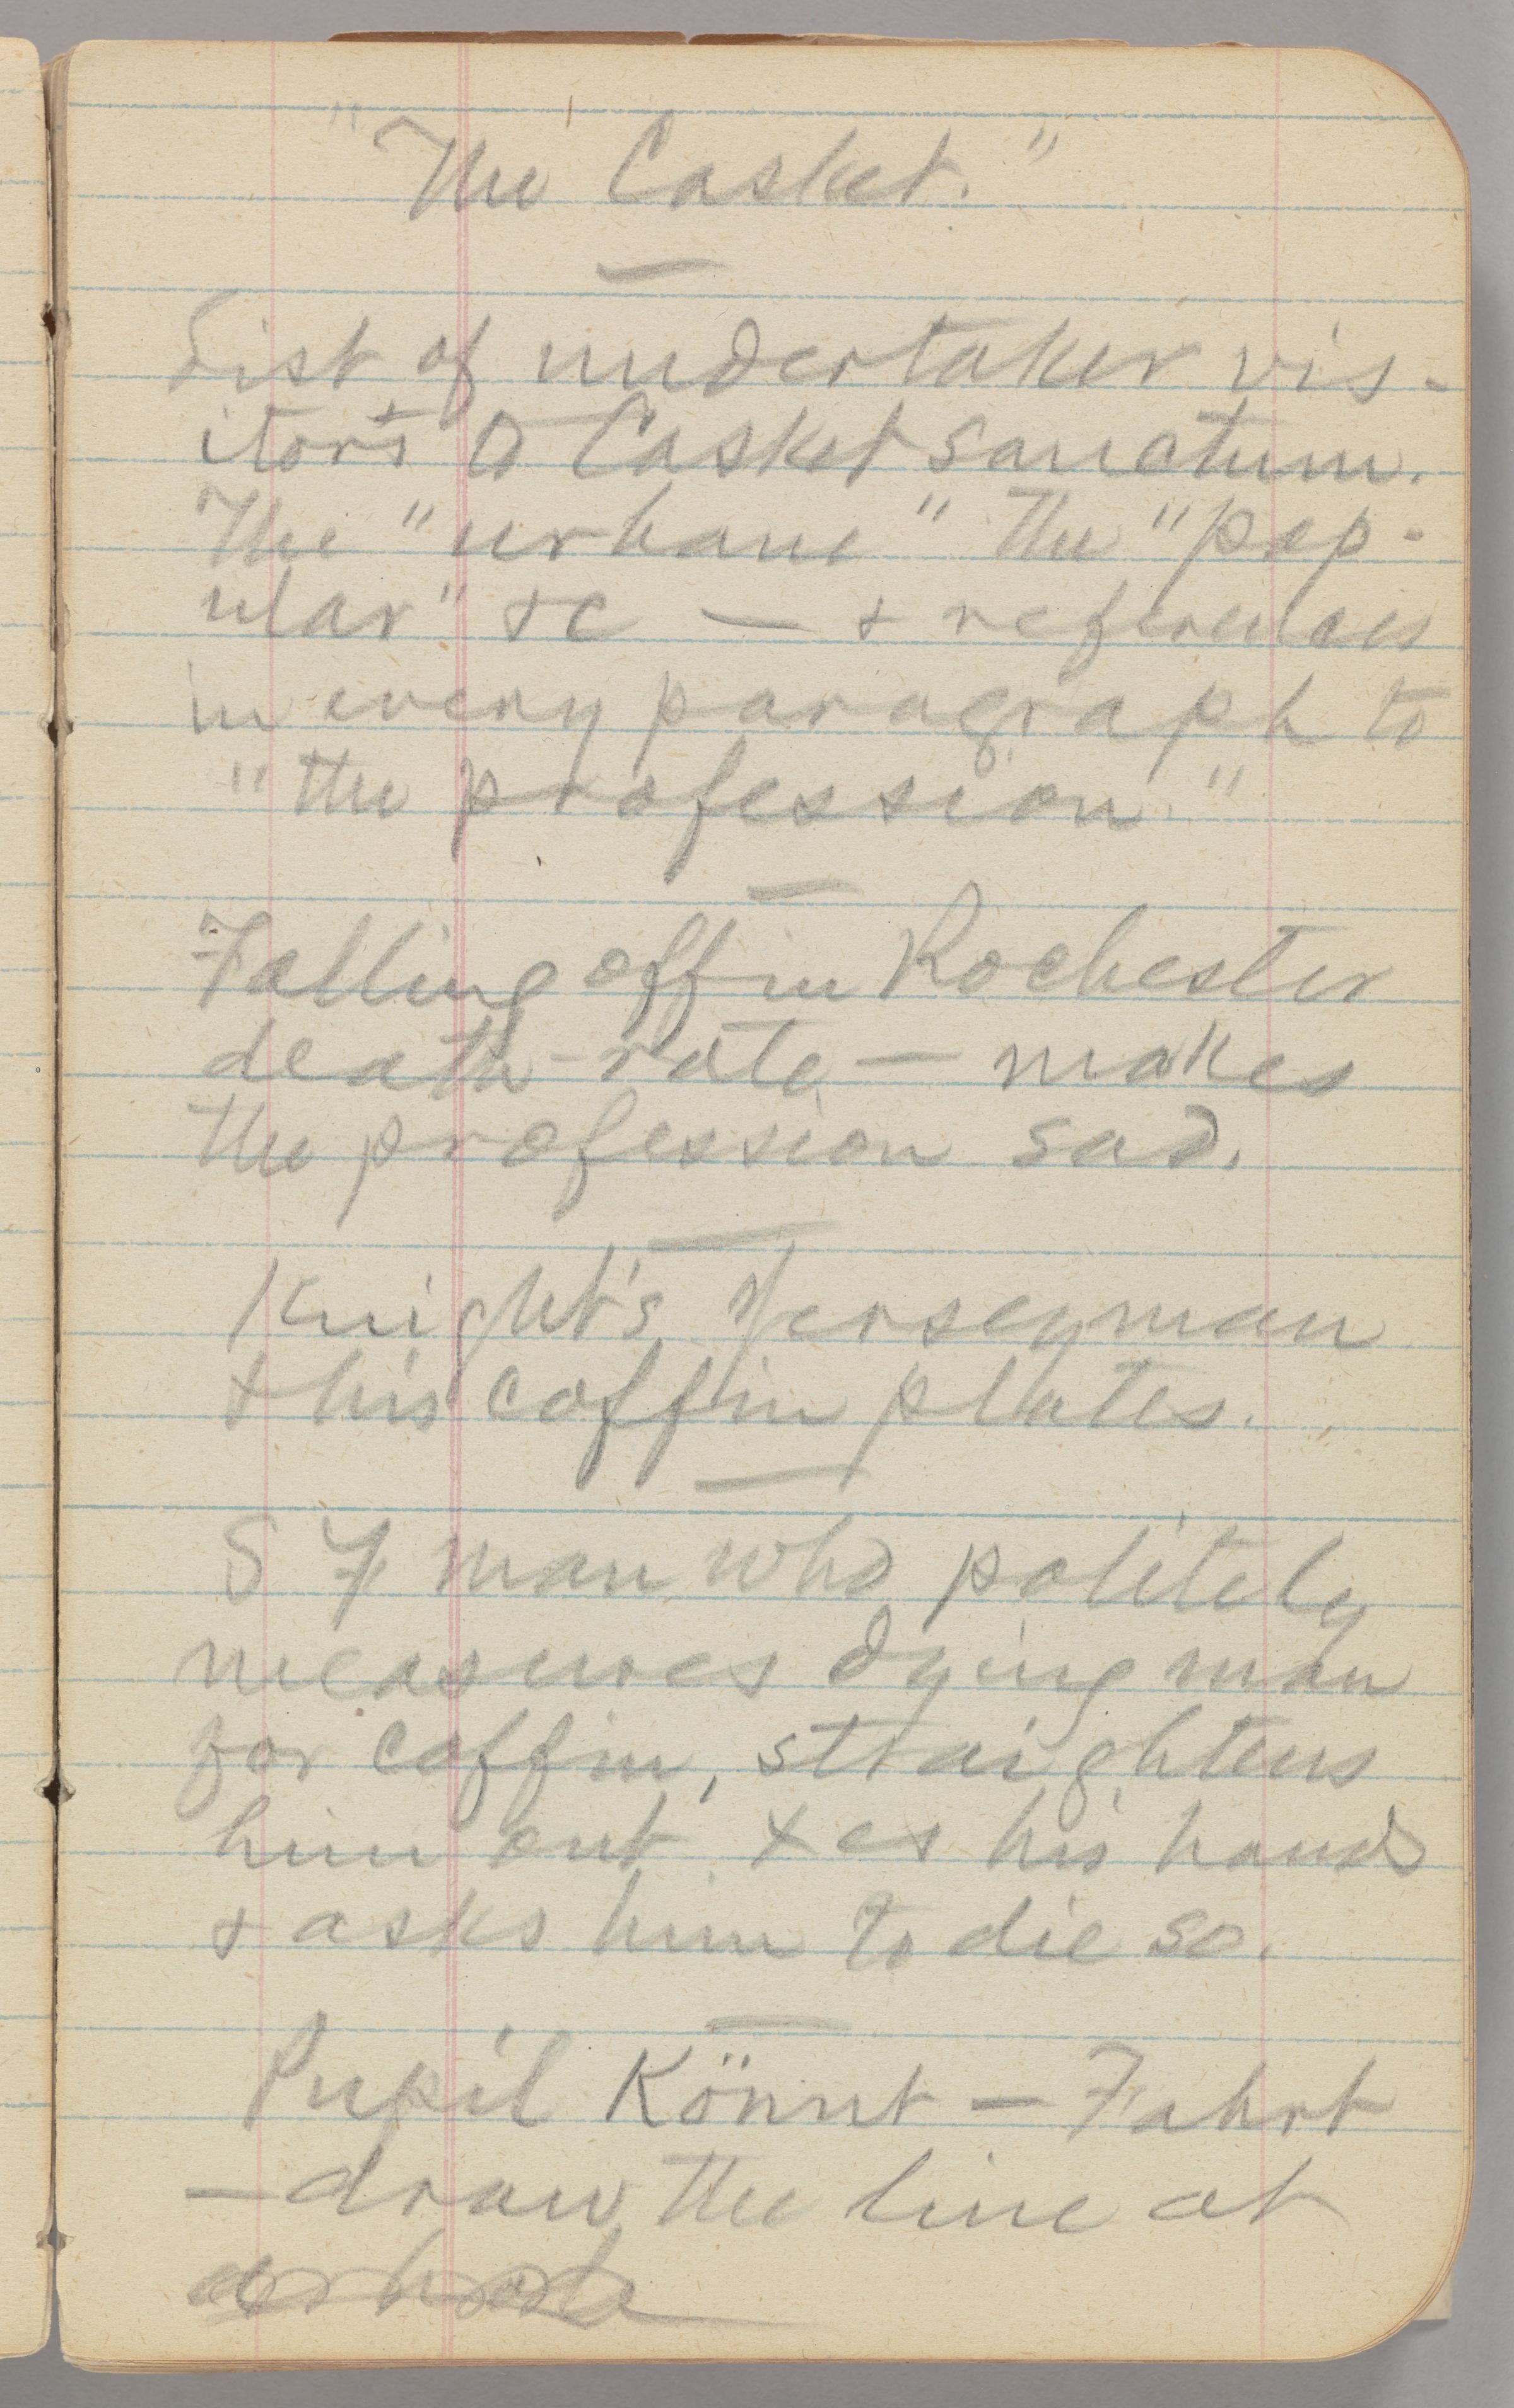 "The Casket."
List of undertaker vis-
itors to Casket sanctum.
The "urbane" the "pop-
ular" &c — & references
in every paragraph to
"the profession."
Falling off in Rochester
death-rate — makes
the profession sad.
Knight's Jerseyman
& his coffin plates.
S F man who politely
measures dying man
for coffin, straightens
him out xes his hands
& asks him to die so.
Pupil Könnt — Fahrt
— draw the line at